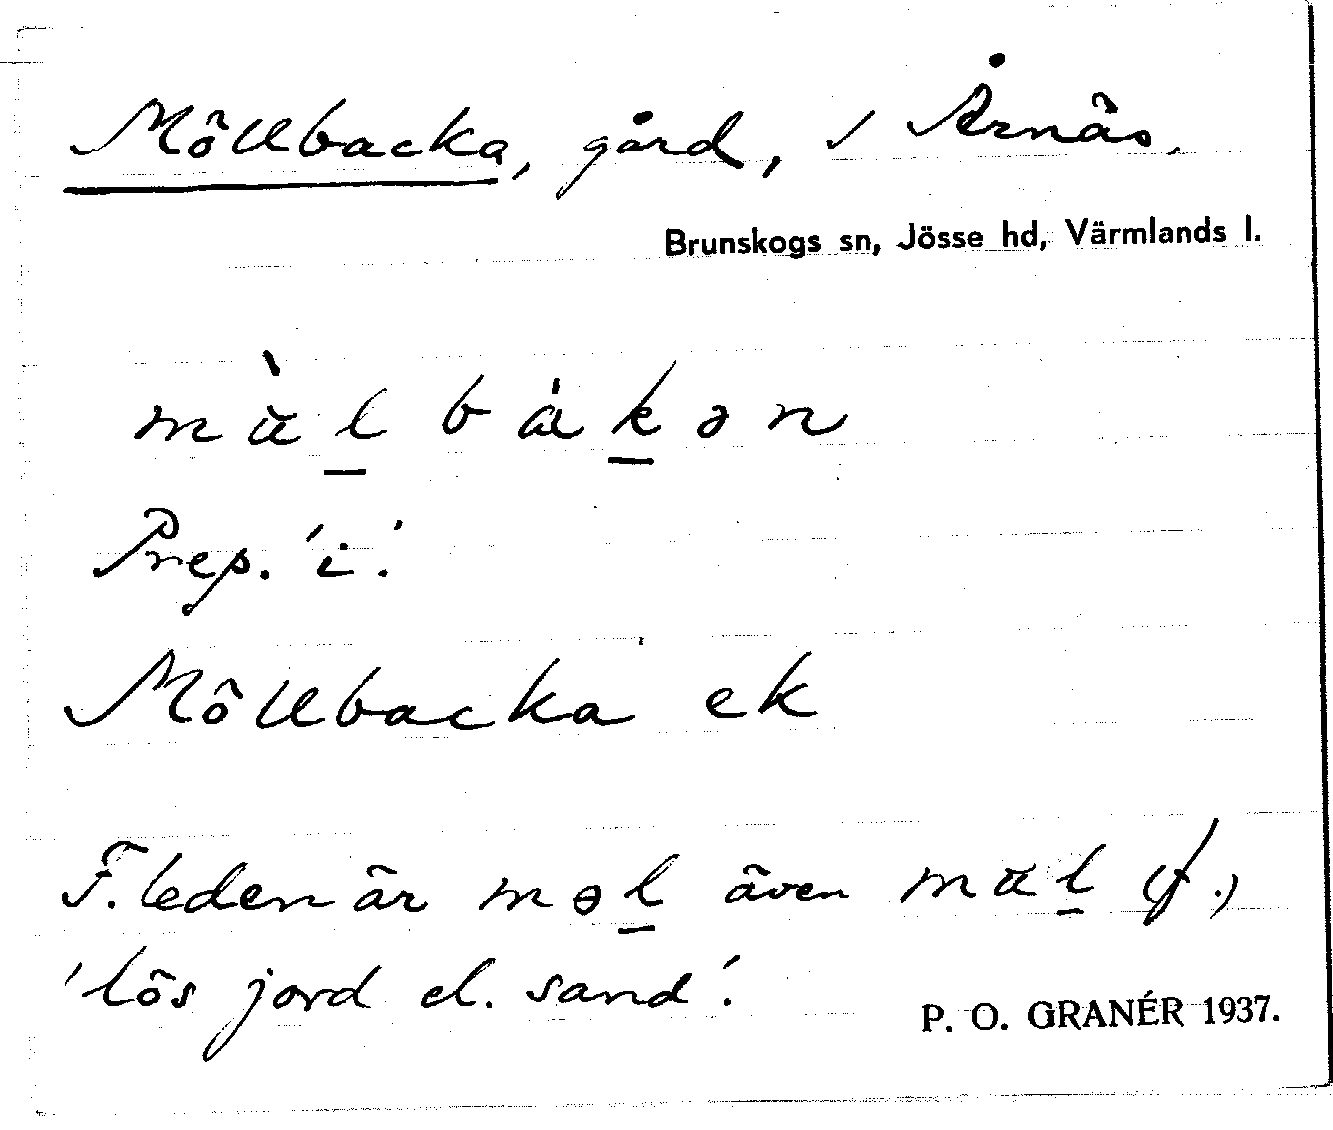 Möllbacka, gård, i Årnäs.
Brunskogs sn, Jösse hd, Värmlands l.
mὰl bákən
Prep. 'i'.
Möllbacka ek
F. leden är məl även mαl (f.)
'lös jord el. sand'.
P. O. GRANÉR 1937.